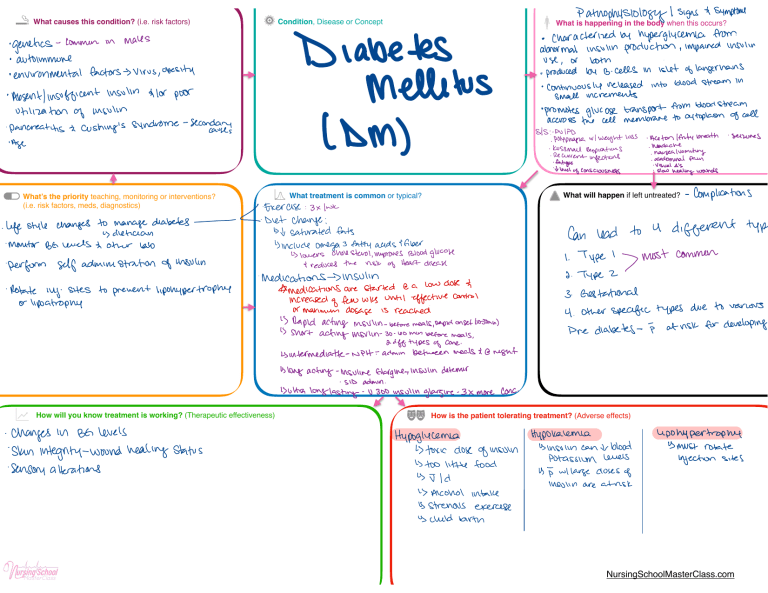 What causes this condition? (i.e. risk factors)
· genetics - common in males
· autoimmune
· environmental factors → virus, obesity
· Absent/insufficent insulin &/or poor
utilization of insulin
pancreatitis & Cushing's Syndrome - secondary
causes
· Age
Condition, Disease or Concept
Diabetes
Mellitus
(DM)
Pathophysiology / Signs & Symptoms
What is happening in the body when this occurs?
· Characterized by hyperglycemia from
abnormal insulin production, impaired insulin
use, or both
· produced by B-cells in islet of langerhans
· Continuously released into blood stream in
small increments
· promotes glucose transport from blood stream
across the cell membrane to cytoplasm of cell
S/S · PU/PD
· Polyphagia w/ weight loss
· Kussmaul respirations
· Recurrent infections
· fatigue
· ↓ level of consciousness
· Aceton/fruity breath
· headache
· nausea/vomiting
· abdominal pain
· visual Δ's
· slow healing wounds
· Seizures
What's the priority teaching, monitoring or interventions?
(i.e. risk factors, meds, diagnostics)
· Life style changes to manage diabetes
↳ dietician
· Monitor BG levels & other labs
Perform self administration of insulin
· Rotate inj. sites to prevent lipohypertrophy
or lipoatrophy
What treatment is common or typical?
Exercise: 3x/wk
Diet change:
↳ ↓ saturated fats
↳ include omega 3 fatty acids & fiber
↳ lowers cholesterol, improves blood glucose
& reduces the risk of heart disease
Medications → insulin
* medications are started @ a low dose &
increased q few wks until effective control
or maximum dosage is reached
↳ Rapid acting insulin - before meals, rapid onset
↳ short acting insulin - 30-60 min before meals,
2 diff types of conc.
↳ intermediate - NPH - admin between meals & @ night
↳ long acting - insuline glargine, insulin detemir
· SID admin.
↳ ultra long lasting - U300 insulin glargine - 3x more conc.
What will happen if left untreated? - Complications
Can lead to 4 different typ
1. Type 1
2. Type 2
most common
3. Gestational
4. Other specific types due to various
Pre diabetes - p̄ at risk for developing
How will you know treatment is working? (Therapeutic effectiveness)
· Changes in BG levels
· Skin integrity - wound healing status
· Sensory alterations
How is the patient tolerating treatment? (Adverse effects)
Hypoglycemia
↳ toxic dose of insulin
↳ too little food
↳ V/d
↳ Alcohol intake
↳ strenous exercise
↳ child birth
Hypokalemia
↳ insulin can ↓ blood
Potassium levels
↳ p̄ w/ large doses of
insulin are at risk
Lipohypertrophy
↳ must rotate
injection sites
NursingSchool
NursingSchoolMasterClass.com